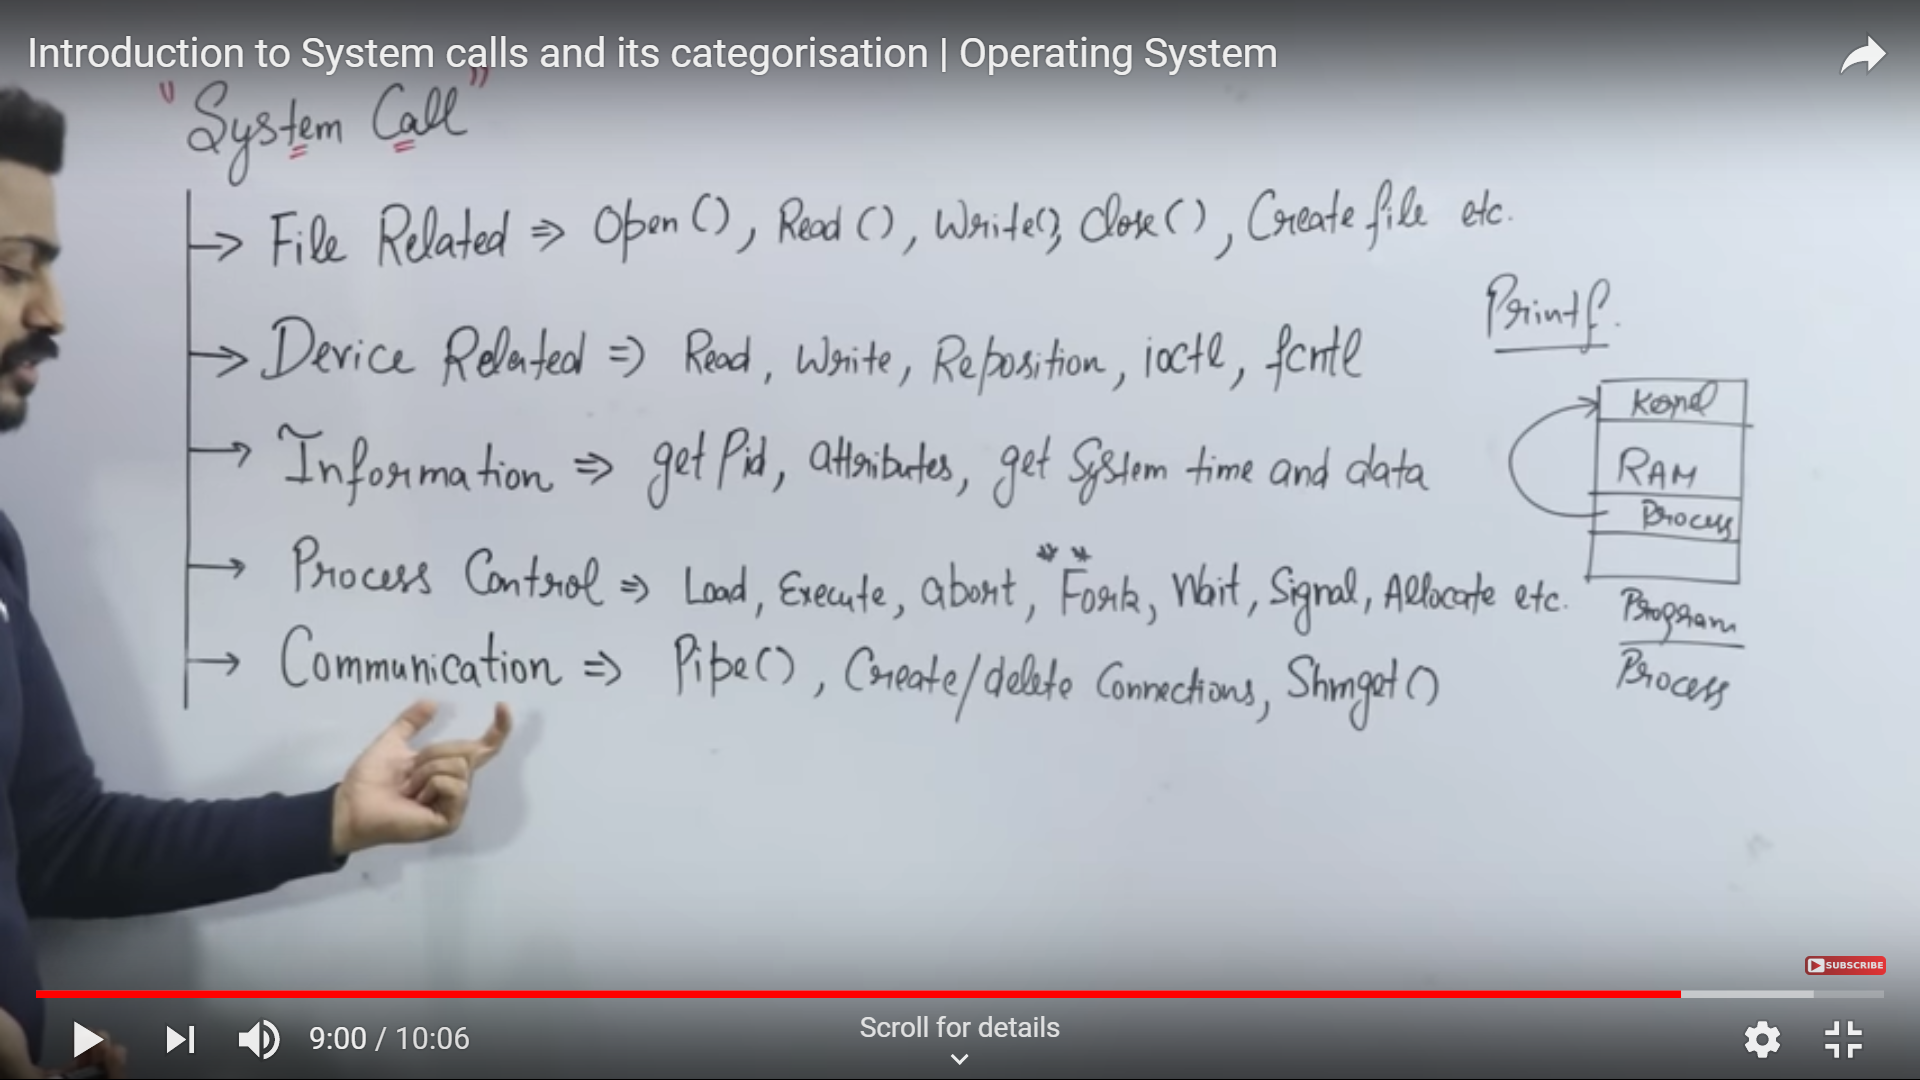 Introduction to System calls and its categorisation | Operating System
"System Call"
→ File Related ⇒ Open(), Read(), Write(), Close(), Create file etc.
Printf.
→ Device Related ⇒ Read, Write, Reposition, ioctl, fcntl
Kernel
→ Information ⇒ get Pid, attributes, get System time and data
RAM
Process
→ Process Control ⇒ Load, Execute, abort, **Fork, Wait, Signal, Allocate etc.
Program
→ Communication ⇒ Pipe(), Create/delete Connections, Shmget()
Process
SUBSCRIBE
9:00 / 10:06
Scroll for details